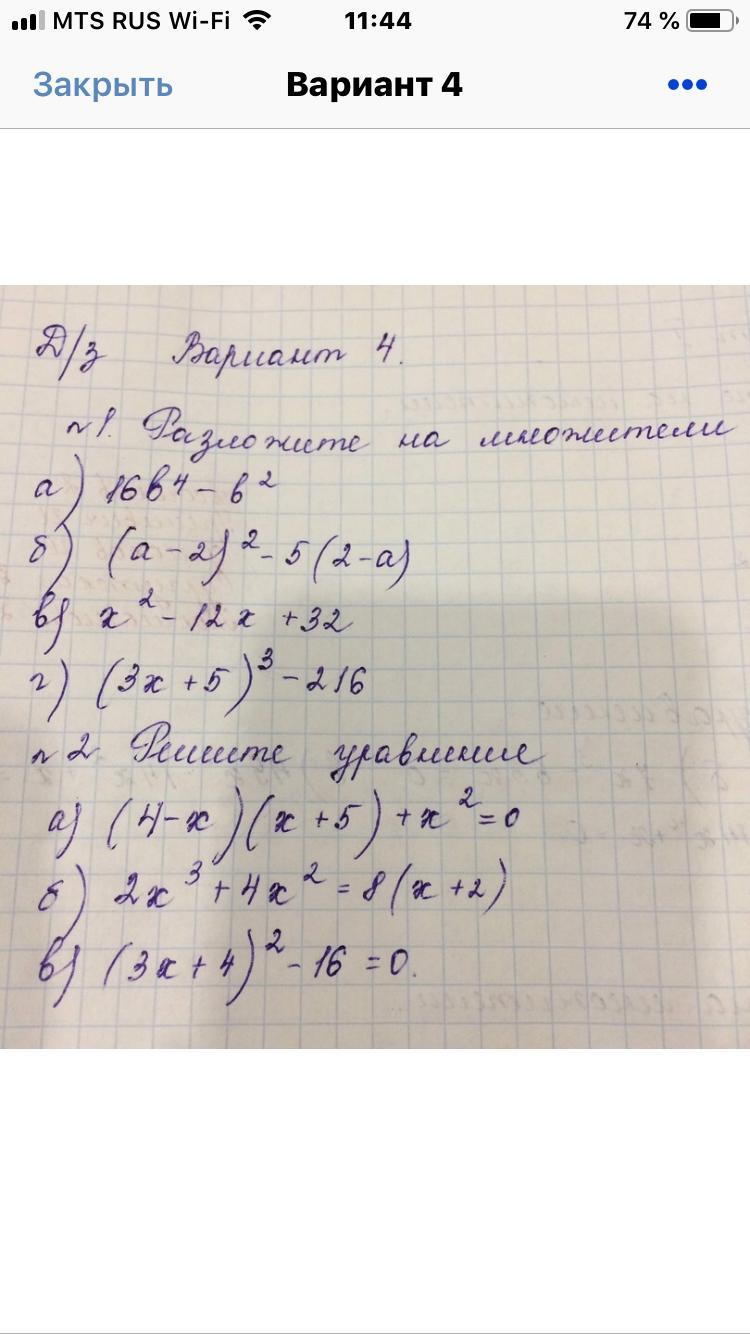 MTS RUS Wi-Fi 11:44 74 %
Закрыть Вариант 4
Д/з Вариант 4.
№1. Разложите на множители
а) 16b⁴ - b²
б) (a - 2)² - 5(2 - a)
в) x² - 12x + 32
г) (3x + 5)³ - 216
№2 Решите уравнение
а) (4 - x)(x + 5) + x² = 0
б) 2x³ + 4x² = 8(x + 2)
в) (3x + 4)² - 16 = 0.